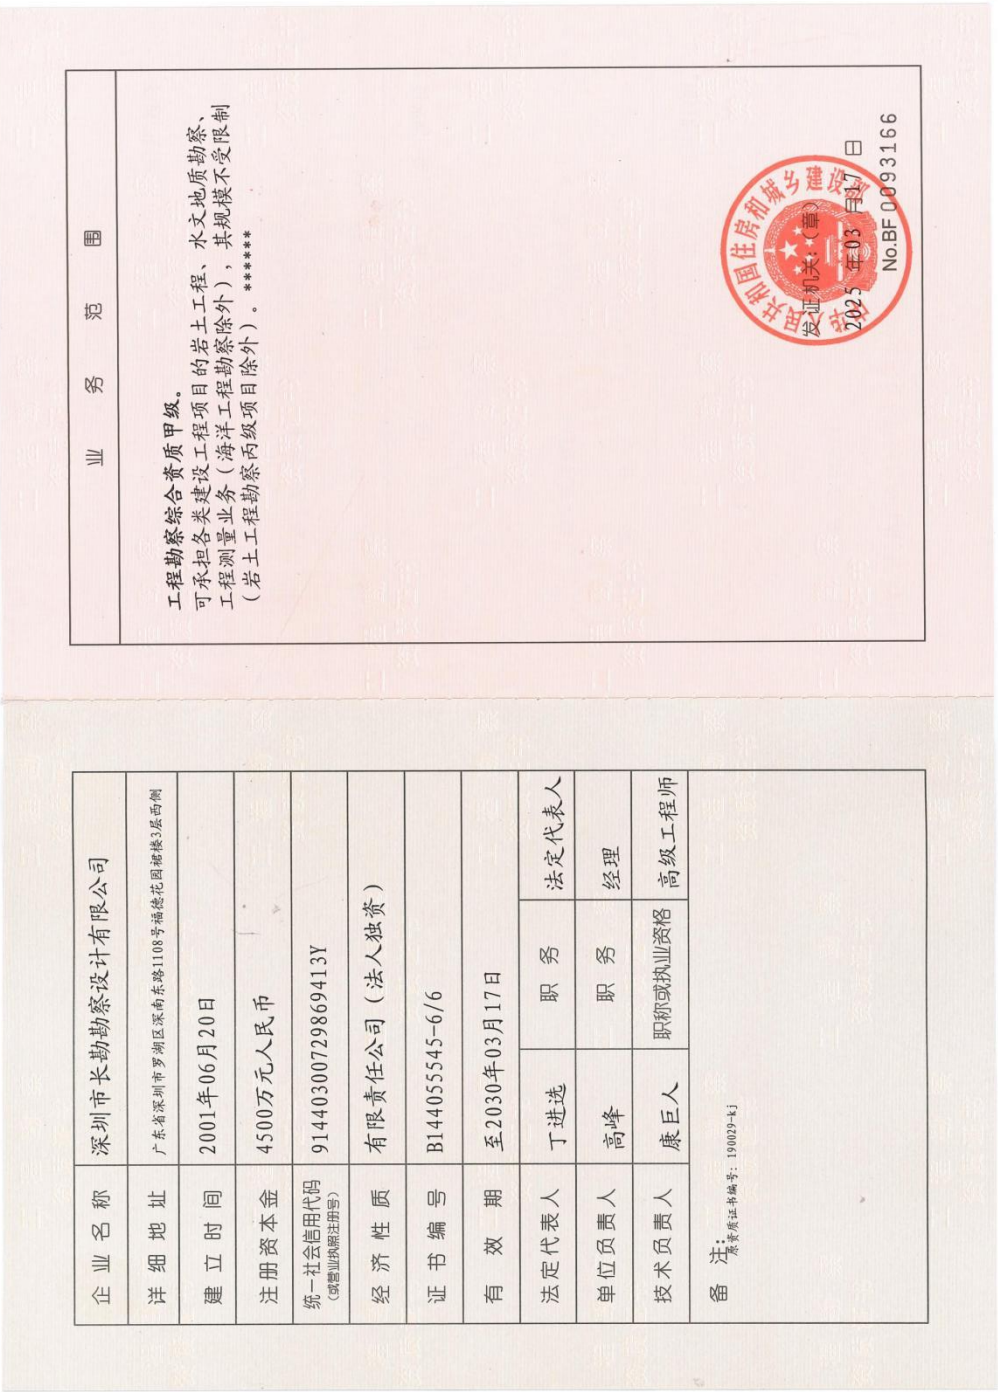 企业名称 深圳市长勘勘察设计有限公司
详细地址 广东省深圳市罗湖区深南东路1108号福德花园裙楼3层西侧
建立时间 2001年06月20日
注册资本金 4500万元人民币
统一社会信用代码 91440300729869413Y
(或营业执照注册号)
经济性质 有限责任公司（法人独资）
证书编号 B144055545-6/6
有效期 至2030年03月17日
法定代表人 丁进选 职务 法定代表人
单位负责人 高峰 职务 经理
技术负责人 康巨人 职称或执业资格 高级工程师
备注：
原资质证书编号：190029-kj
业务范围
工程勘察综合资质甲级。
可承担各类建设工程项目的岩土工程、水文地质勘察、
工程测量业务（海洋工程勘察除外），其规模不受限制
（岩土工程勘察丙级项目除外）。******
中华人民共和国住房和城乡建设部
发证机关：（章）
2025年03月17日
No.BF 0093166